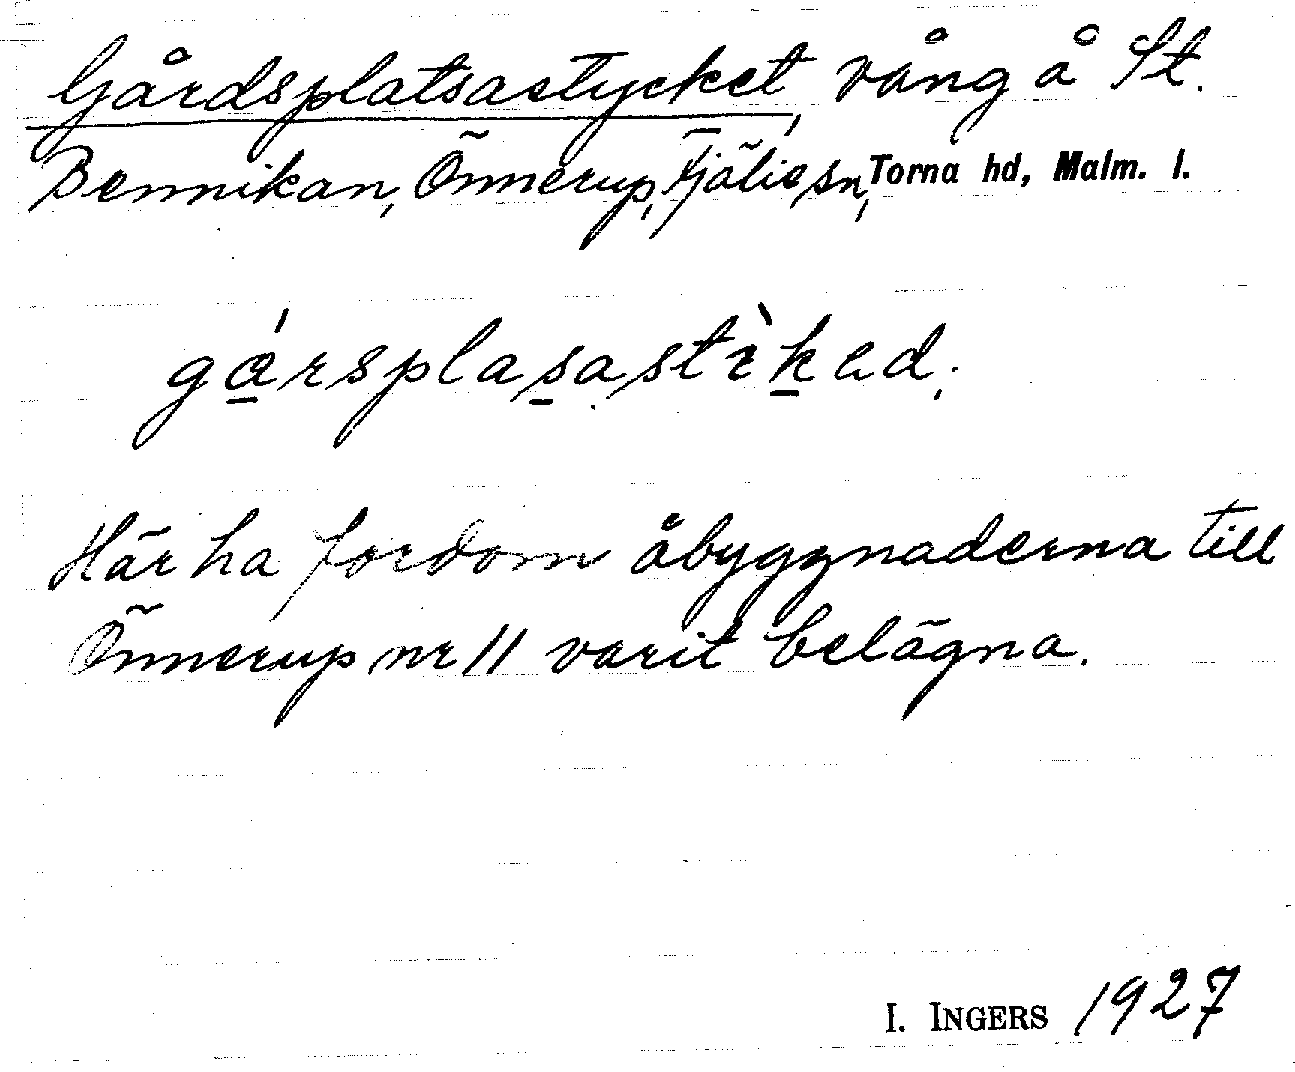 Gårdsplatsastycket, vång å St.
Bennikan, Önnerup, Fjälie sn, Torna hd, Malm. l.
gårsplasastìked.
Här ha fordom åbyggnaderna till
Önnerup nr 11 varit belägna.
I. INGERS 1927